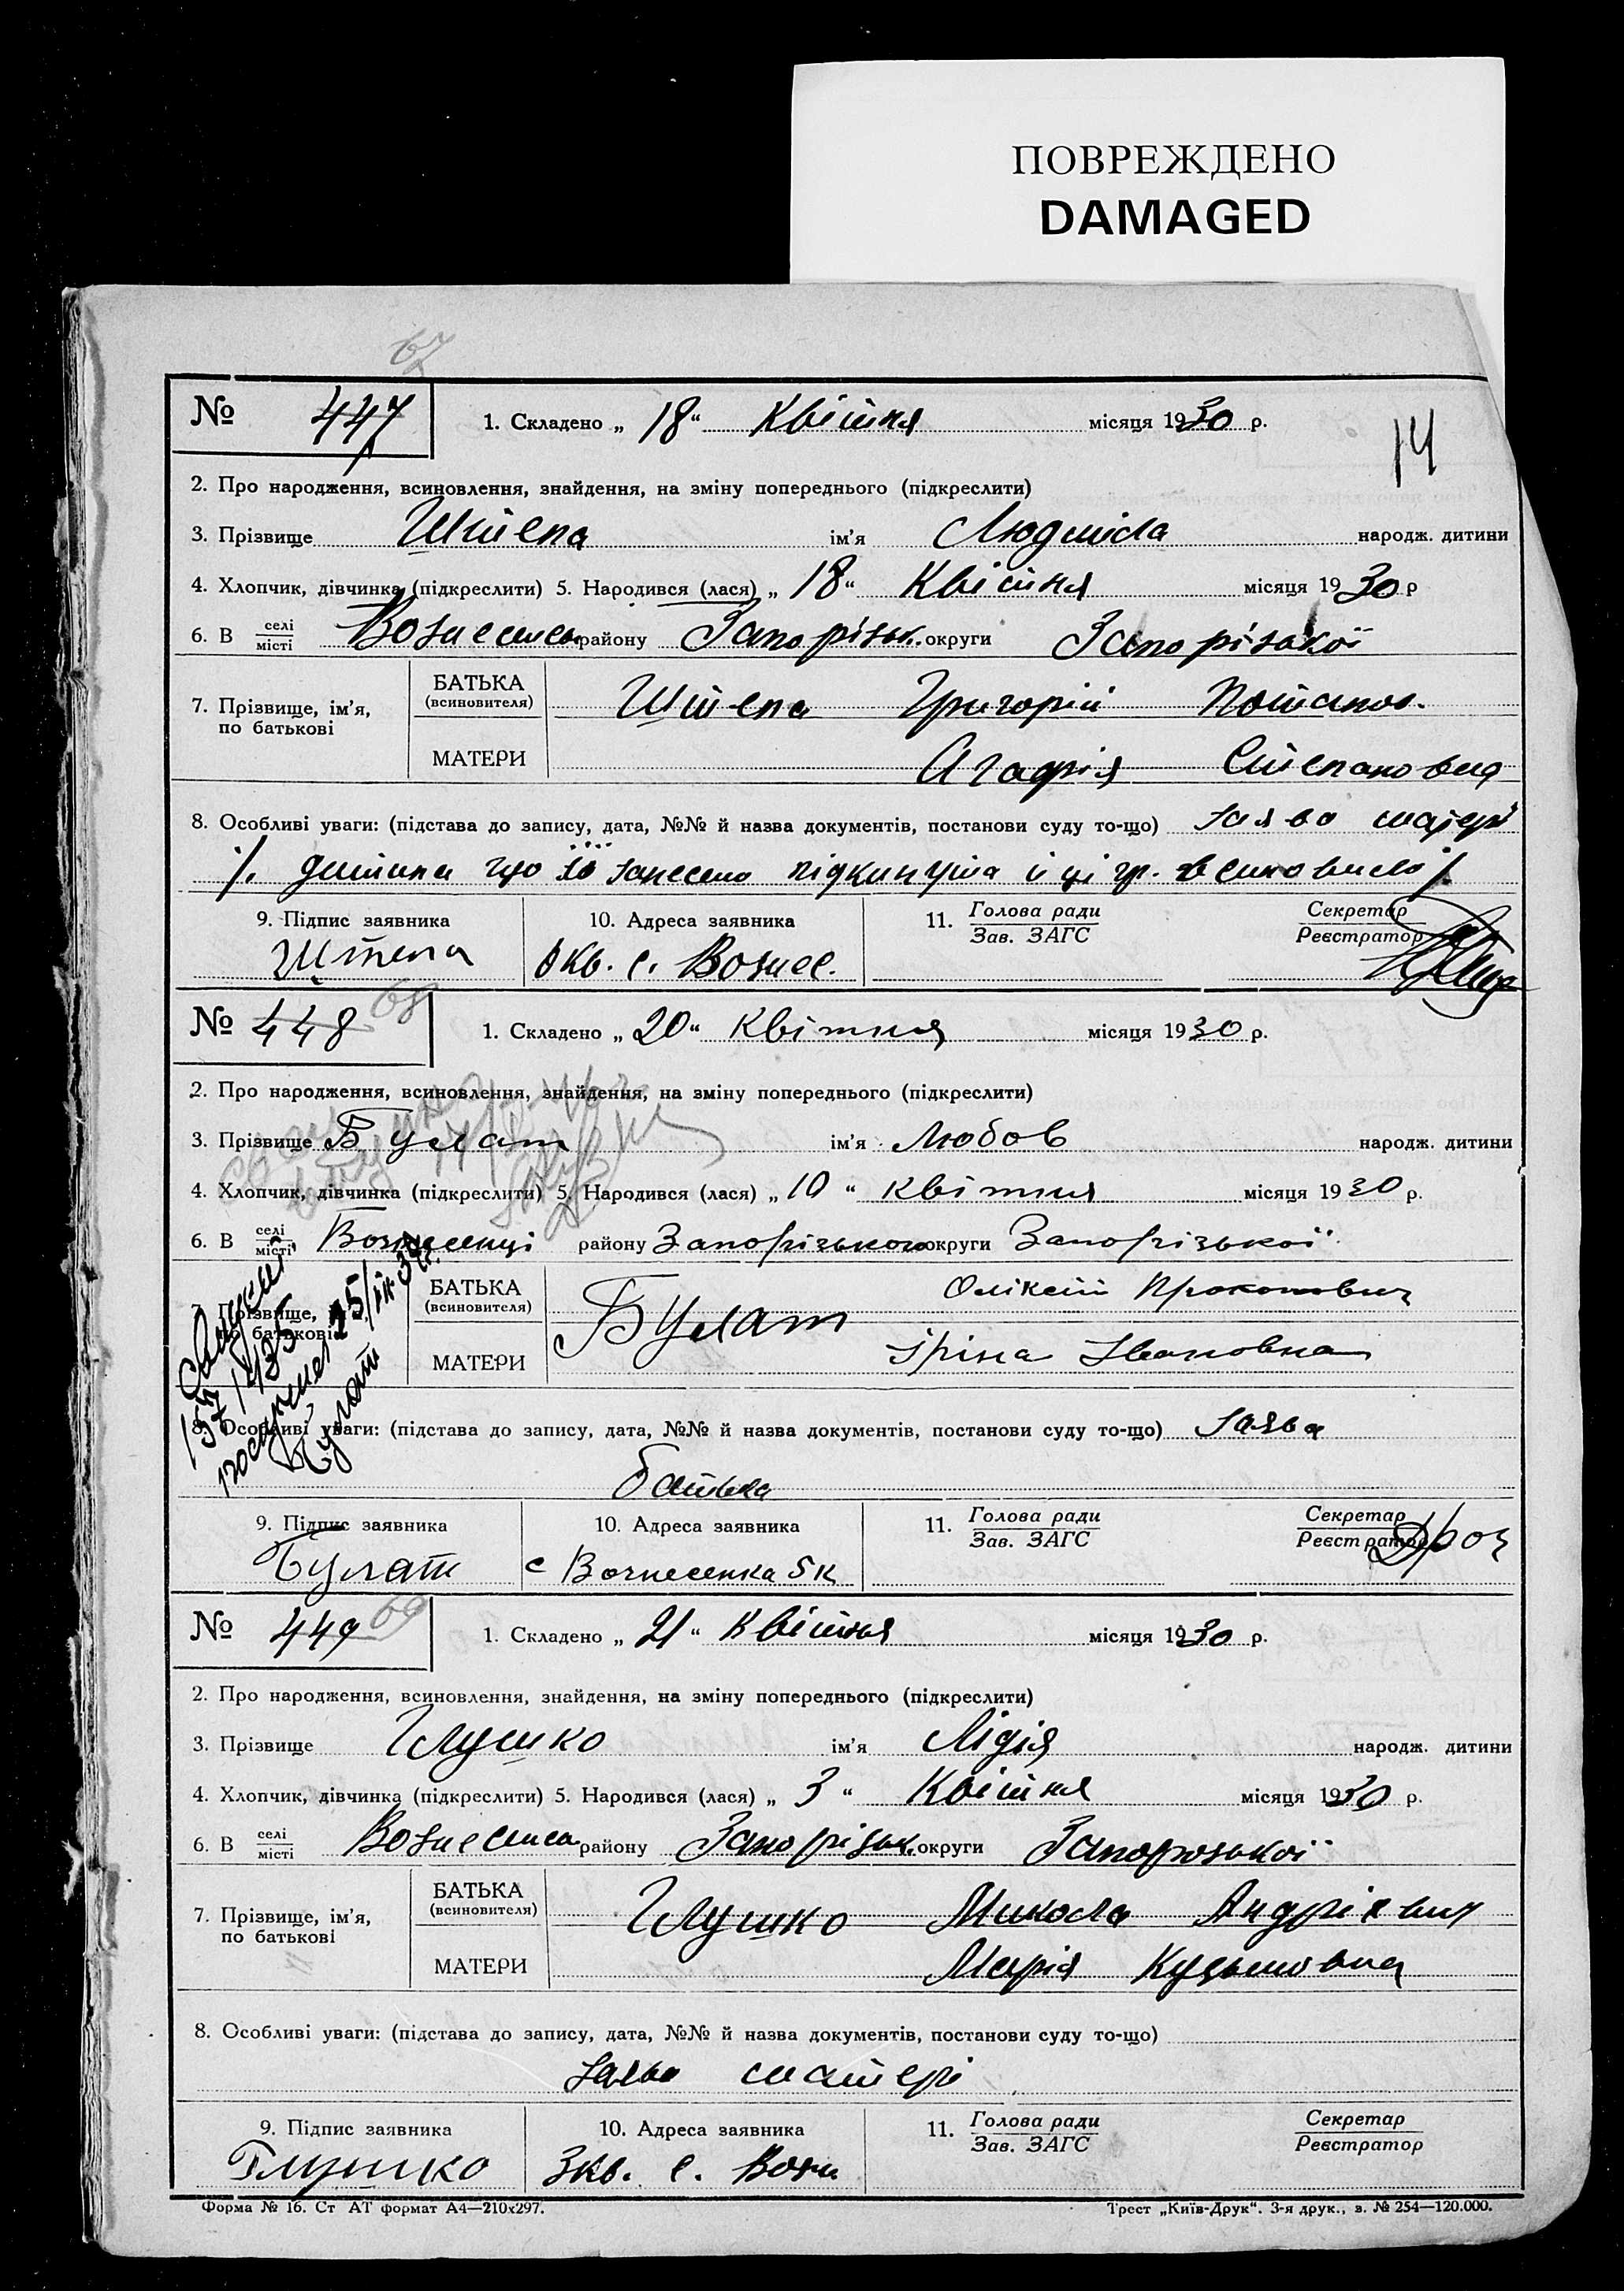 ПОВРЕЖДЕНО
DAMAGED
67
№ 447 1. Складено „ 18 “ Квітня місяця 1930 р.
14
2. Про народження, всиновлення, знайдення, на зміну попереднього (підкреслити)
3. Прізвище Штепа ім’я Людміла народж. дитини
4. Хлопчик, дівчинка (підкреслити) 5. Народився (лася) „ 18 “ Квітня місяця 1930 р
6. В селі місті Вознесенськ району Запоріськ. округи Запорізької
7. Прізвище, ім’я, по батькові
БАТЬКА (всиновителя) Штепа Григорій Потапов.
МАТЕРИ Агафія Степановна
8. Особливі уваги: (підстава до запису, дата, №№ й назва документів, постанови суду то-що) заява матері
/. дитина що занесено підкинута й ці гр. всиновило /.
9. Підпис заявника 10. Адреса заявника 11. Голова ради Зав. ЗАГС Секретар Реєстратор
Штепа кв. с. Вознес.
№ 448 68 1. Складено „ 20 “ Квітня місяця 1930 р.
2. Про народження, всиновлення, знайдення, на зміну попереднього (підкреслити)
3. Прізвище Булат ім’я Любов народж. дитини
4. Хлопчик, дівчинка (підкреслити) 5. Народився (лася) „ 10 “ квітня місяця 1930 р.
6. В селі місті Вознесенці району Запорізького округи Запорізької
7. Прізвище, ім’я, по батькові
БАТЬКА (всиновителя) Булат Оліксій Прокопович
МАТЕРИ Іріна Івановна
8. Особливі уваги: (підстава до запису, дата, №№ й назва документів, постанови суду то-що) заява
батька
Булат
9. Підпис заявника 10. Адреса заявника 11. Голова ради Зав. ЗАГС Секретар Реєстратор
Булат с Вознесенка 5 к
№ 449 69 1. Складено „ 21 “ Квітня місяця 1930 р.
2. Про народження, всиновлення, знайдення, на зміну попереднього (підкреслити)
3. Прізвище Глушко ім’я Лідія народж. дитини
4. Хлопчик, дівчинка (підкреслити) 5. Народився (лася) „ 3 “ Квітня місяця 1930 р.
6. В селі місті Вознесенса району Запорізьк. округи Запорозької
7. Прізвище, ім’я, по батькові
БАТЬКА (всиновителя) Глушко Микола Андрієвич
МАТЕРИ Марія Кузьмовна
8. Особливі уваги: (підстава до запису, дата, №№ й назва документів, постанови суду то-що)
заява матері
9. Підпис заявника 10. Адреса заявника 11. Голова ради Зав. ЗАГС Секретар Реєстратор
Глушко 3 кв. с. Возн
Форма № 16. Ст АТ формат А4—210х297. Трест „Київ-Друк“. 3-я друк., з. № 254—120.000.